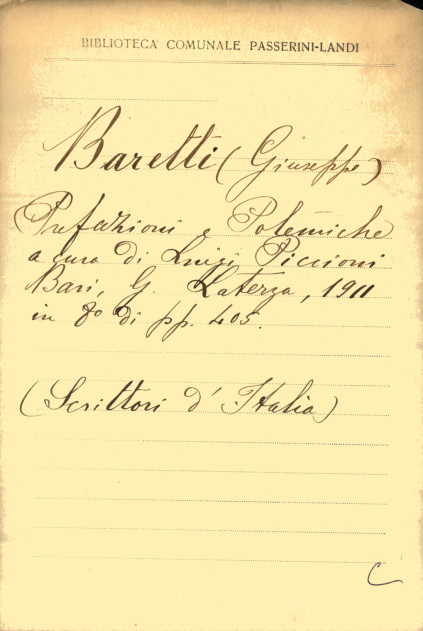 BIBLIOTECA COMUNALE PASSERINI-LANDI
Baretti (Giuseppe)
Prefazioni e Polemiche
a cura di Luigi Piccioni
Bari, G. Laterza, 1911
in 8º di pp. 405.
(Scrittori d'Italia)
C